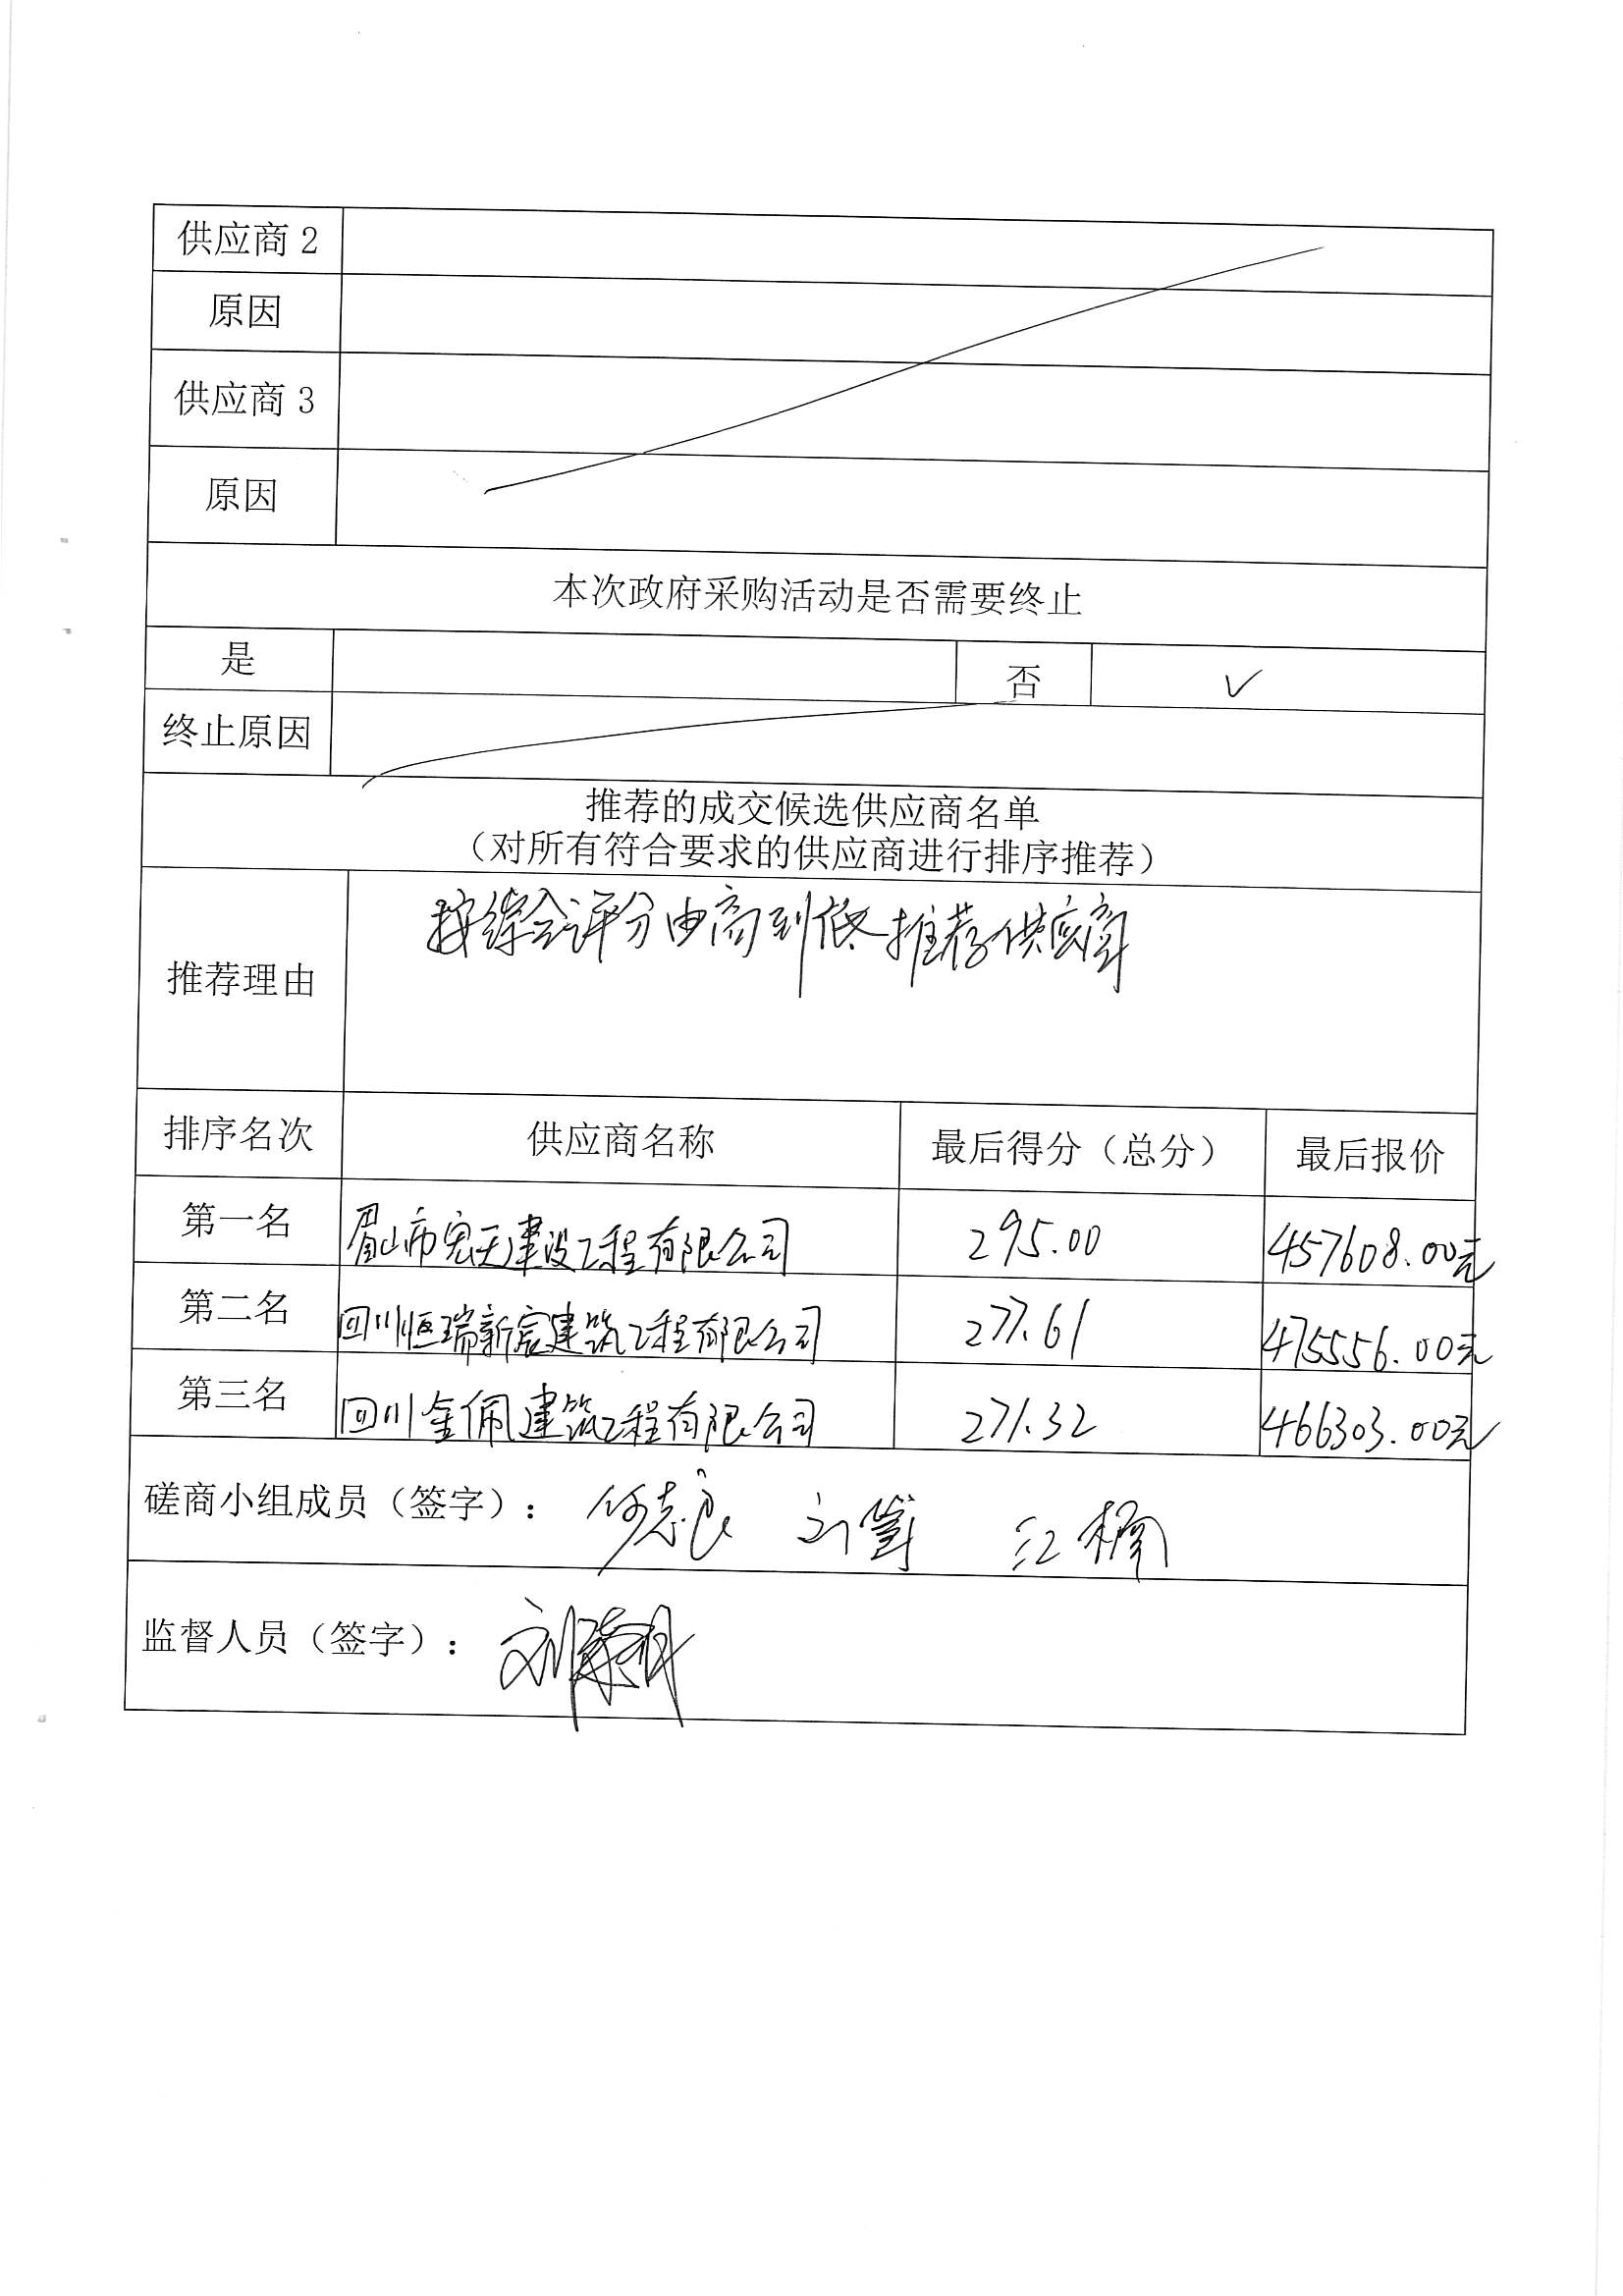 供应商 2
原因
供应商 3
原因
本次政府采购活动是否需要终止
是 否 ✓
终止原因
推荐的成交候选供应商名单
（对所有符合要求的供应商进行排序推荐）
推荐理由 按综合评分由高到低推荐供应商
排序名次 供应商名称 最后得分（总分） 最后报价
第一名 眉山市宏天建设工程有限公司 295.00 457608.00元
第二名 四川恒瑞新宏建筑工程有限公司 277.61 475556.00元
第三名 四川金佩建筑工程有限公司 271.32 466303.00元
磋商小组成员（签字）： 何志良 江楠
监督人员（签字）：